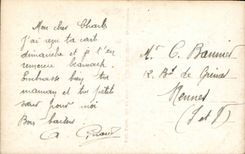 Mon cher Charles
j'ai reçu ta carte
dimanche et je t'en
remercie beaucoup
Embrasse bien ta
maman et ta petite
sœur pour moi
Bons baisers
Mr C. Bannier
2. Bd de
Rennes
(I et V)